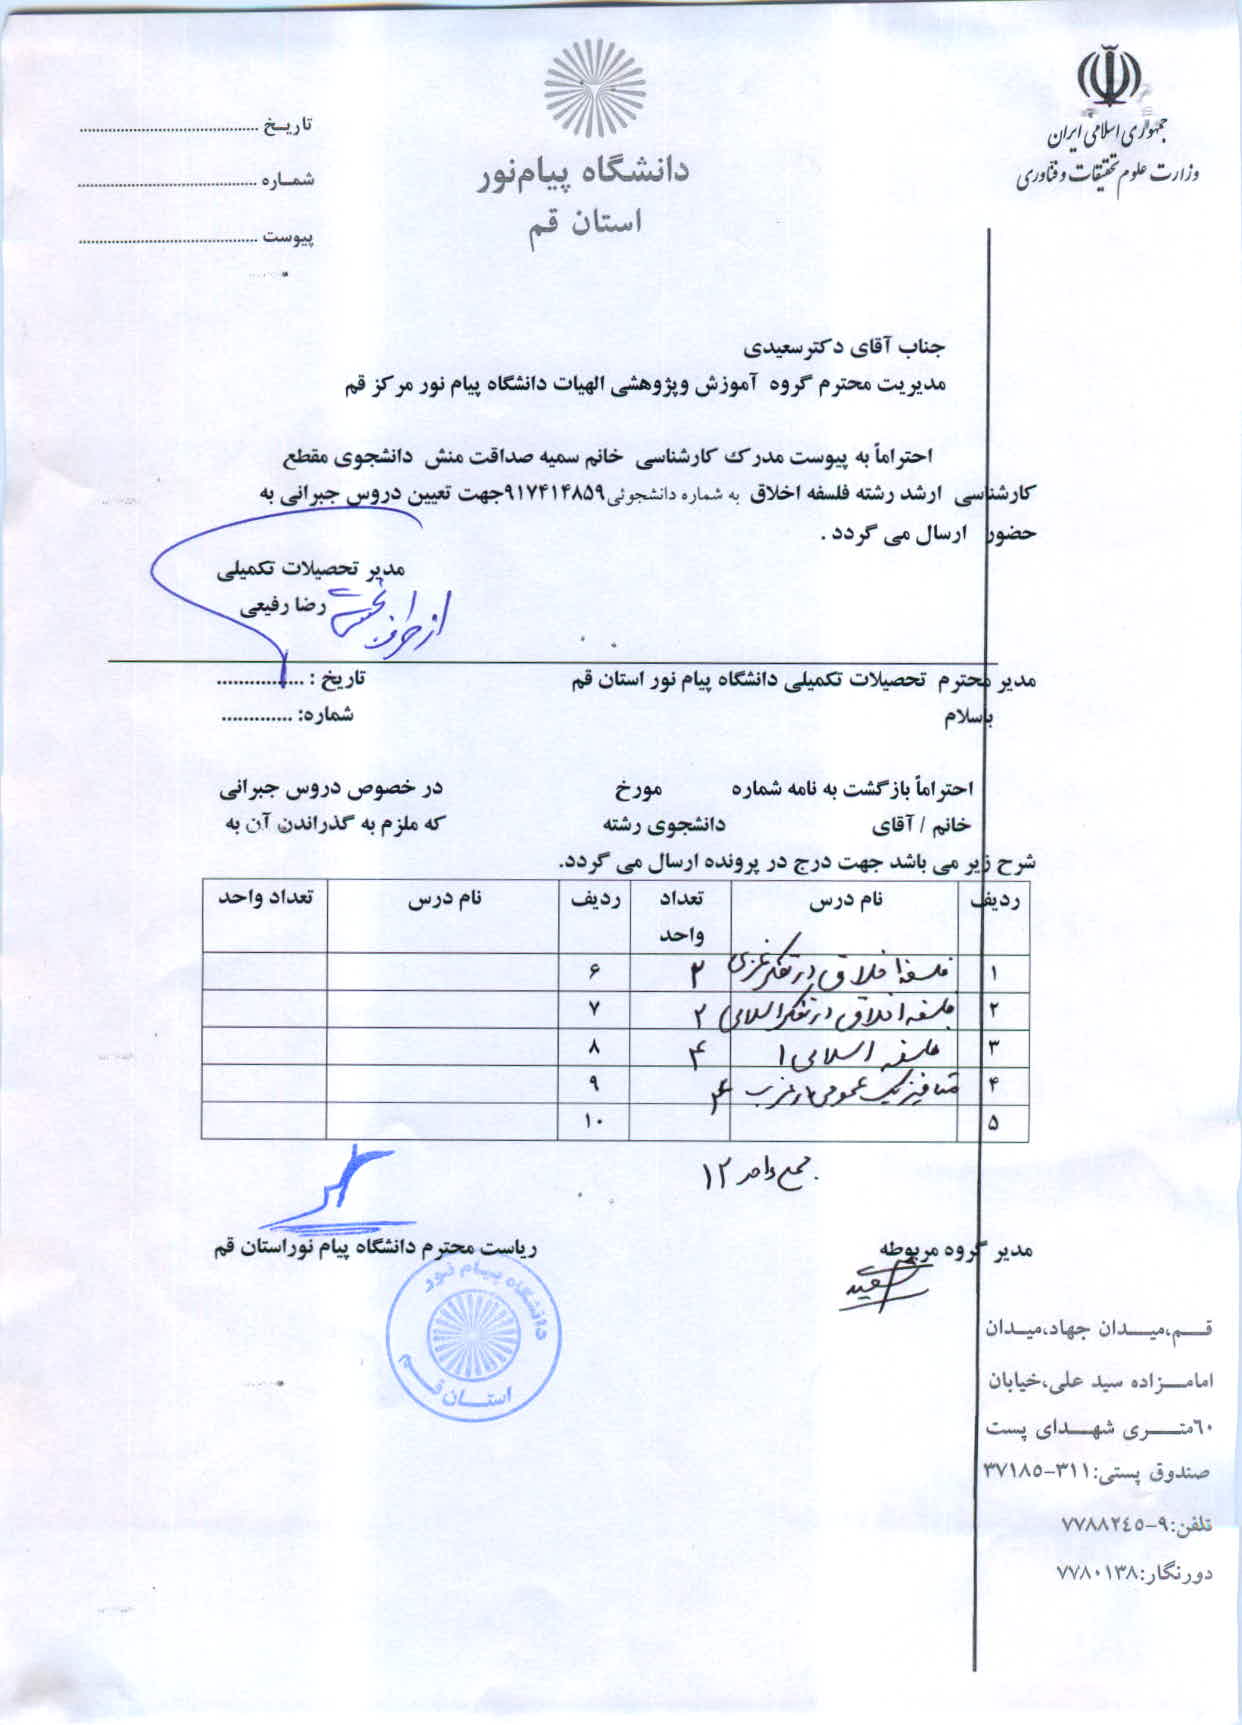 جمهوری اسلامی ایران
وزارت علوم تحقیقات و فناوری
دانشگاه پیام‌نور
استان قم
تاریـخ ......................................
شمـاره ......................................
پیوست ......................................
جناب آقای دکترسعیدی
مدیریت محترم گروه آموزش وپژوهشی الهیات دانشگاه پیام نور مرکز قم
احتراماً به پیوست مدرک کارشناسی خانم سمیه صداقت منش دانشجوی مقطع
کارشناسی ارشد رشته فلسفه اخلاق به شماره دانشجوئی ۹۱۷۴۱۴۸۵۹جهت تعیین دروس جبرانی به
حضور ارسال می گردد .
مدیر تحصیلات تکمیلی
رضا رفیعی
از طرف
مدیر محترم تحصیلات تکمیلی دانشگاه پیام نور استان قم تاریخ : ...............
باسلام شماره: .............
احتراماً بازگشت به نامه شماره مورخ در خصوص دروس جبرانی
خانم / آقای دانشجوی رشته که ملزم به گذراندن آن به
شرح زیر می باشد جهت درج در پرونده ارسال می گردد.
ردیف نام درس تعداد واحد ردیف نام درس تعداد واحد
۱ فلسفه اخلاق در تفکر غربی ۲ ۶
۲ فلسفه اخلاق در تفکر اسلامی ۲ ۷
۳ فلسفه اسلامی ۱ ۴ ۸
۴ متافیزیک عمومی در غرب ۴ ۹
۵ ۱۰
جمع واحد ۱۲
مدیر گروه مربوطه ریاست محترم دانشگاه پیام نوراستان قم
دانشگاه پیام نور
استـان قـم
قــم،میــدان جهاد،میـدان
امامــزاده سید علی،خیابان
۶۰متــری شهــدای پست
صندوق پستی:۳۱۱-۳۷۱۸۵
تلفن:۹-۷۷۸۸۲٤۵
دورنگار:۷۷۸۰۱۳۸